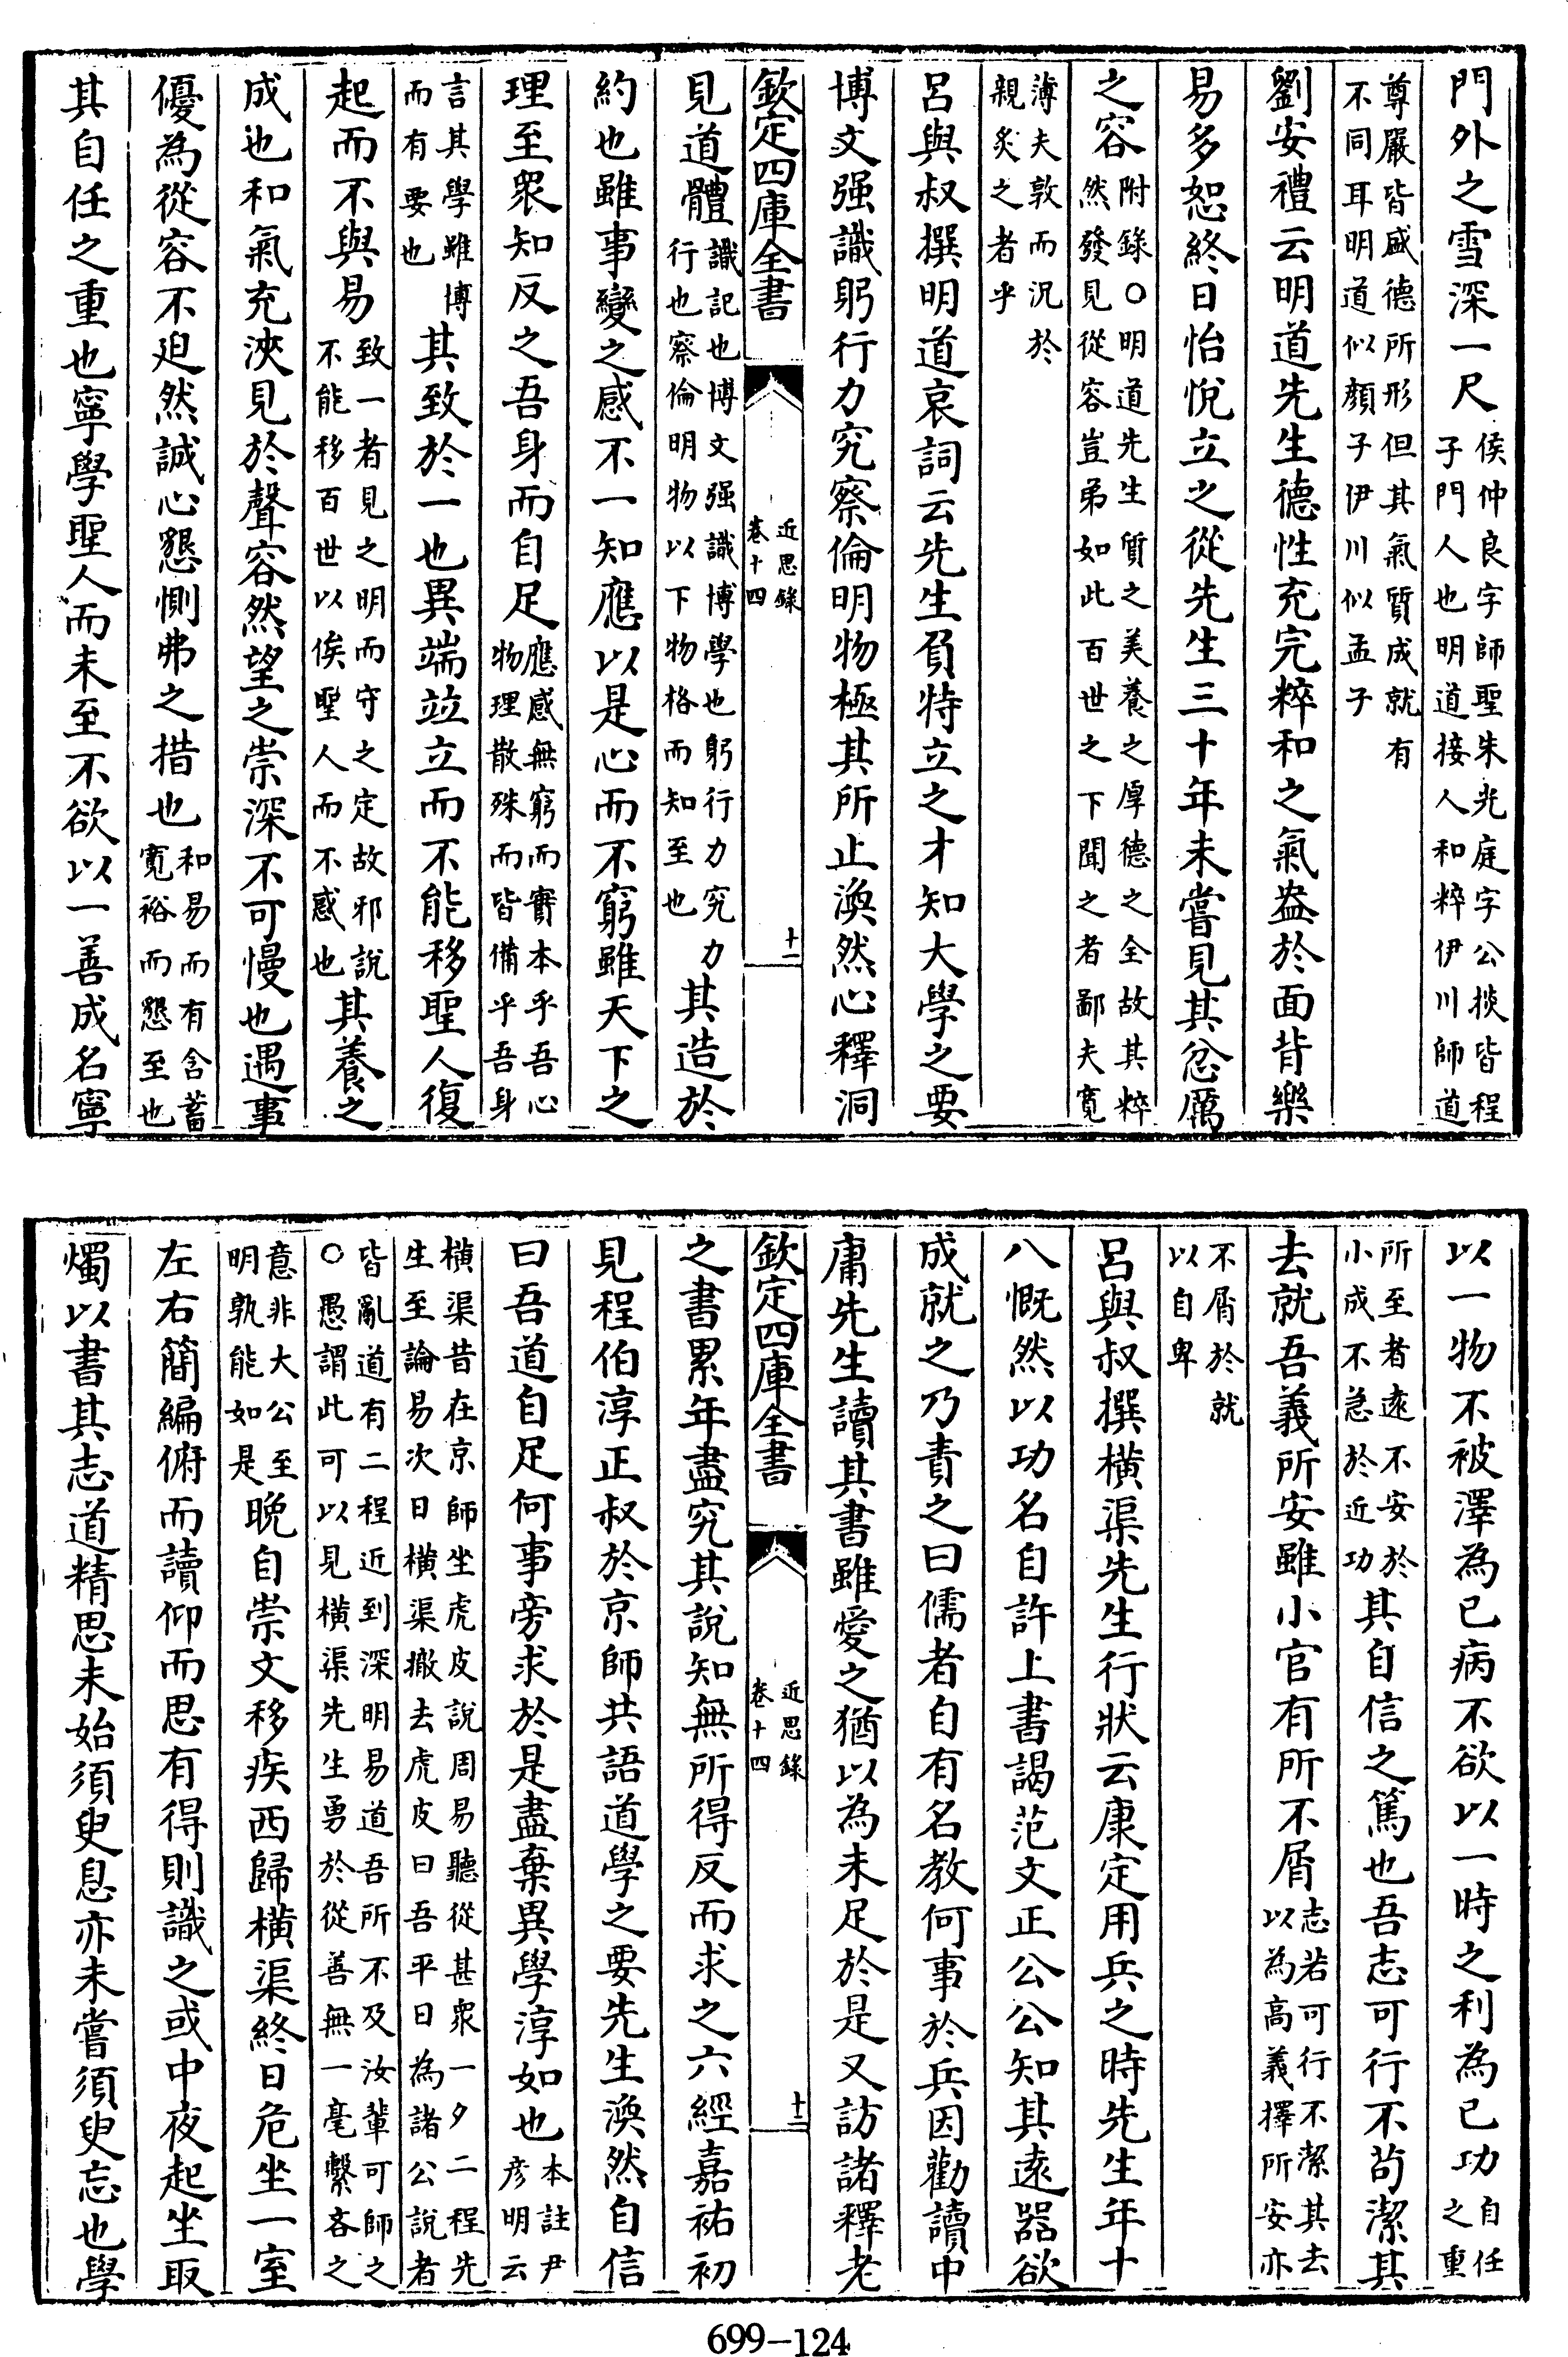 門外之雪深一尺侯仲良字師聖朱光庭字公掞皆程子門人也明道接人和粹伊川師道
尊嚴皆盛德所形但其氣質成就有不同耳明道似顏子伊川似孟子
劉安禮云明道先生德性充完粹和之氣盎於面背樂
易多恕終日怡悅立之從先生三十年未嘗見其忿厲
之容附錄○明道先生質之美養之厚德之全故其粹然發見從容豈弟如此百世之下聞之者鄙夫寛
薄夫敦而況於親炙之者乎
呂與叔撰明道哀詞云先生負特立之才知大學之要
博文强識躬行力究察倫明物極其所止渙然心釋洞
欽定四庫全書
近思錄
卷十四
十一
見道體識記也博文强識博學也躬行力究力行也察倫明物以下物格而知至也其造於
約也雖事變之感不一知應以是心而不窮雖天下之
理至衆知反之吾身而自足應感無窮而實本乎吾心物理散殊而皆備乎吾身
言其學雖博而有要也其致於一也異端竝立而不能移聖人復
起而不與易致一者見之明而守之定故邪說不能移百世以俟聖人而不惑也其養之
成也和氣充浹見於聲容然望之崇深不可慢也遇事
優為從容不廹然誠心懇惻弗之措也和易而有含蓄寬裕而懇至也
其自任之重也寧學聖人而未至不欲以一善成名寧
以一物不被澤為已病不欲以一時之利為已功自任之重
所至者遠不安於小成不急於近功其自信之篤也吾志可行不苟潔其
去就吾義所安雖小官有所不屑志若可行不潔其去以為高義擇所安亦
不屑於就以自卑
呂與叔撰橫渠先生行狀云康定用兵之時先生年十
八慨然以功名自許上書謁范文正公公知其遠器欲
成就之乃責之曰儒者自有名教何事於兵因勸讀中
庸先生讀其書雖愛之猶以為未足於是又訪諸釋老
欽定四庫全書
近思錄
卷十四
十二
之書累年盡究其說知無所得反而求之六經嘉祐初
見程伯淳正叔於京師共語道學之要先生渙然自信
曰吾道自足何事旁求於是盡棄異學淳如也本註尹彦明云
橫渠昔在京師坐虎皮說周易聽從甚衆一夕二程先生至論易次日橫渠撤去虎皮曰吾平日為諸公說者
皆亂道有二程近到深明易道吾所不及汝輩可師之○愚謂此可以見橫渠先生勇於從善無一毫繫吝之
意非大公至明孰能如是晚自崇文移疾西歸橫渠終日危坐一室
左右簡編俯而讀仰而思有得則識之或中夜起坐取
燭以書其志道精思未始須臾息亦未嘗須臾忘也學
699-124